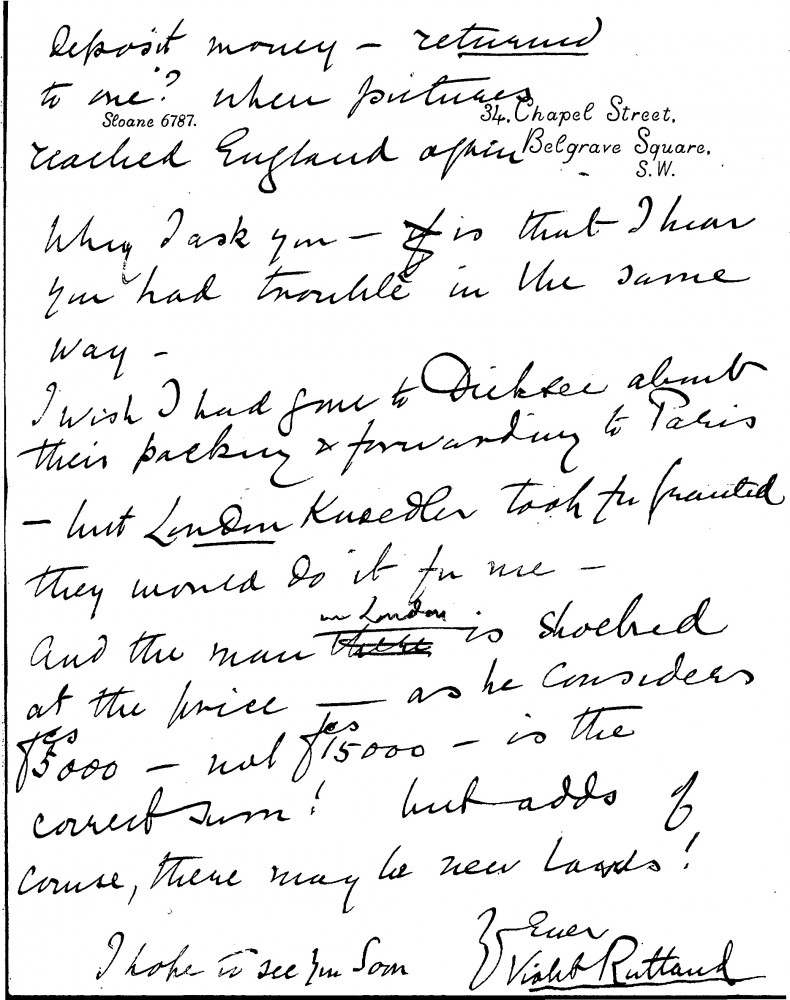 Deposit money – returned
to one? when pictures
Sloane 6787.
34, Chapel Street,
Belgrave Square,
S.W.
reached England again
Why I ask you – is that I hear
you had trouble in the same
way –
I wish I had gone to Dicksee about
their packing & forwarding to Paris
– but London Knoedler took for granted
they would do it for me –
in London
And the man there is shocked
at the price — as he considers
fcs 5000 – not fcs 15000 – is the
correct sum! but adds of
course, there may be new laws!
Ever
I hope to see you soon
Violet Rutland